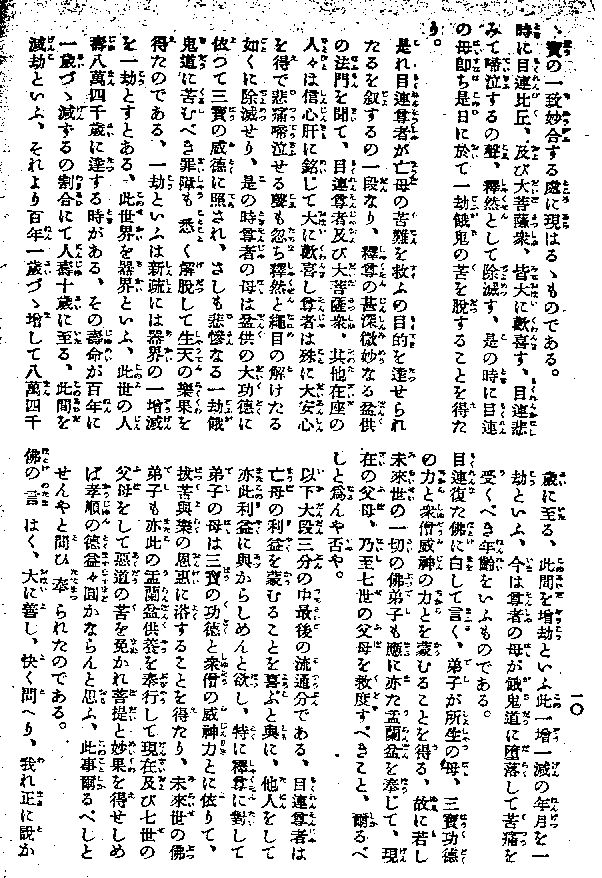 ゝ寶の一致妙合する處に現はるゝものである。
時に目連比丘、及び大菩薩衆、皆大に歡喜す、目連悲
みて啼泣するの聲、釋然として除滅す、是の時に目連
の母即ち是日に於て一劫餓鬼の苦を脱することを得た
り。
是れ目連尊者が亡母の苦難を救ふの目的を達せられ
たるを叙するの一段なり、釋尊の甚深微妙なる盆供
の法門を聞て、目連尊者及び大菩薩衆、其他在座の
人々は信心肝に銘じて大に歡喜し尊者は殊に大安心
を得て悲痛啼泣せる聲も忽ち釋然と繩目の解けたる
如くに除滅せり、是の時尊者の母は盆供の大功德に
依つて三寶の威德に照され、さしも悲慘なる一劫餓
鬼道に苦むべき罪障も悉く解脱して生天の樂果を
得たのである、一劫といふは新疏には器界の一增減
を一劫とすとある、此世界を器界といふ、此世の人
壽八萬四千歳に達する時がある、その壽命が百年に
一歳づゝ減ずるの割合にて人壽十歳に至る、此間を
減劫といふ、それより百年一歳づゝ增して八萬四千
一〇
歳に至る、此間を增劫といふ此一增一減の年月を一
劫といふ、今は尊者の母が餓鬼道に墮落して苦痛を
受くべき年齡をいふものである。
目連復た佛に白して言く、弟子が所生の母、三寶功德
の力と衆僧威神の力とを蒙むることを得る、故に若し
未來世の一切の佛弟子も應に亦た盂蘭盆を奉じて、現
在の父母、乃至七世の父母を救度すべきこと、爾るべ
しと爲んや否や。
以下大段三分の中最後の流通分である、目連尊者は
亡母の利益を蒙むることを喜ぶと與に、他人をして
亦此利益に與からしめんと欲し、特に釋尊に對して
弟子の母は三寶の功德と衆僧の威神力とに依りて、
拔苦與樂の恩惠に浴することを得たり、未來世の佛
弟子も亦此の盂蘭盆供養を奉行して現在及び七世の
父母をして惡道の苦を免かれ菩提と妙果を得せしめ
ば孝順の德益々圓かならんと思ふ、此事爾るべしと
せんやと問ひ奉られたのである。
佛の言はく、大に善し、快く問へり、我れ正に説か